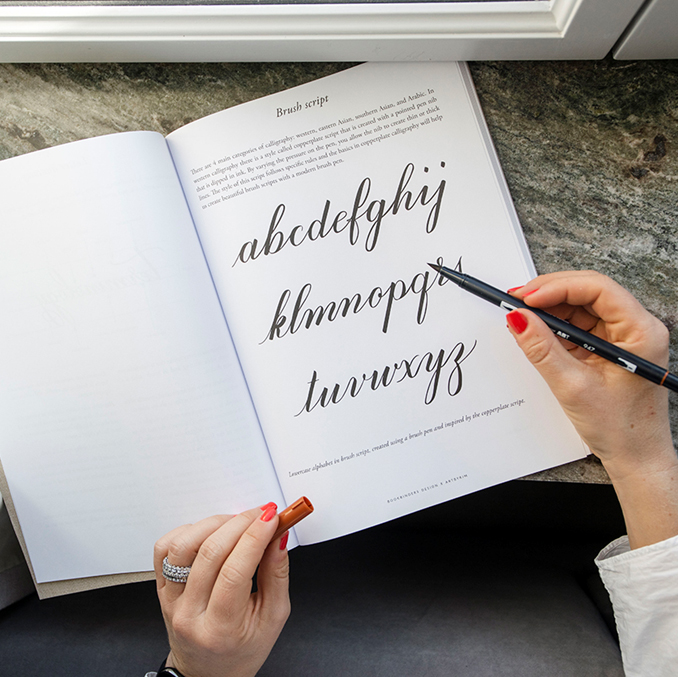 Brush script
There are 4 main categories of calligraphy; western, eastern Asian, southern Asian, and Arabic. In
western calligraphy there is a style called copperplate script that is created with a pointed pen nib
that is dipped in ink. By varying the pressure on the pen, you allow the nib to create thin or thick
lines. The style of this script follows specific rules and the basics in copperplate calligraphy will help
to create beautiful brush scripts with a modern brush pen.
abcdefghij
klmnopqrs
tuvwxyz
Lowercase alphabet in brush script, created using a brush pen and inspired by the copperplate script.
BOOKBINDERS DESIGN X ARTBYKIM
ABT 947